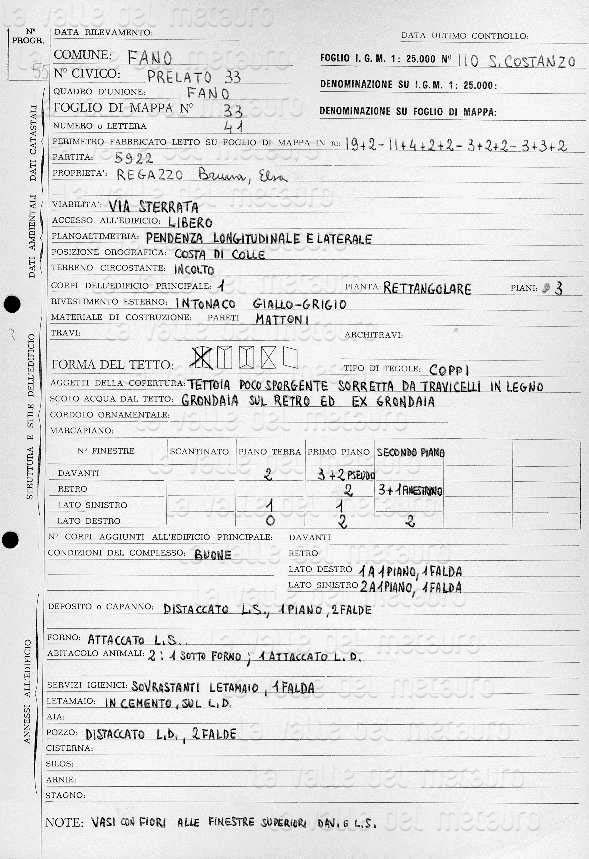 N° PROGR.
55
DATA RILEVAMENTO:
DATA ULTIMO CONTROLLO:
COMUNE: FANO
FOGLIO I.G.M. 1: 25.000 N° 110 S. COSTANZO
N° CIVICO: PRELATO 33
DENOMINAZIONE SU I.G.M. 1: 25.000:
QUADRO D'UNIONE: FANO
FOGLIO DI MAPPA N° 33
DENOMINAZIONE SU FOGLIO DI MAPPA:
NUMERO o LETTERA 41
PERIMETRO FABBRICATO LETTO SU FOGLIO DI MAPPA IN m: 19+2-11+4+2+2-3+2+2-3+3+2
PARTITA: 5922
PROPRIETA': REGAZZO Bruna, Elsa
DATI CATASTALI
VIABILITA': VIA STERRATA
ACCESSO ALL'EDIFICIO: LIBERO
PLANOALTIMETRIA: PENDENZA LONGITUDINALE E LATERALE
POSIZIONE OROGRAFICA: COSTA DI COLLE
TERRENO CIRCOSTANTE: INCOLTO
DATI AMBIENTALI
CORPI DELL'EDIFICIO PRINCIPALE: 1
PIANTA RETTANGOLARE
PIANI: 3
RIVESTIMENTO ESTERNO: INTONACO GIALLO-GRIGIO
MATERIALE DI COSTRUZIONE: PARETI MATTONI
TRAVI:
ARCHITRAVI:
FORMA DEL TETTO:
TIPO DI TEGOLE: COPPI
AGGETTI DELLA COPERTURA: TETTOIA POCO SPORGENTE SORRETTA DA TRAVICELLI IN LEGNO
SCOLO ACQUA DAL TETTO: GRONDAIA SUL RETRO ED EX GRONDAIA
CORDOLO ORNAMENTALE:
MARCAPIANO:
N° FINESTRE SCANTINATO PIANO TERRA PRIMO PIANO SECONDO PIANO
DAVANTI 2 3+2 PSEUDO
RETRO 2 3+1 FINESTRINO
LATO SINISTRO 1 1
LATO DESTRO 0 2 2
STRUTTURA E STILE DELL'EDIFICIO
N° CORPI AGGIUNTI ALL'EDIFICIO PRINCIPALE: DAVANTI
CONDIZIONI DEL COMPLESSO: BUONE
RETRO
LATO DESTRO 1 A 1 PIANO, 1 FALDA
LATO SINISTRO 2 A 1 PIANO, 1 FALDA
DEPOSITO o CAPANNO: DISTACCATO L.S., 1 PIANO, 2 FALDE
FORNO: ATTACCATO L.S..
ABITACOLO ANIMALI: 2: 1 SOTTO FORNO; 1 ATTACCATO L.D.
SERVIZI IGIENICI: SOVRASTANTI LETAMAIO, 1 FALDA
LETAMAIO: IN CEMENTO, SUL L.D.
AIA:
POZZO: DISTACCATO L.D., 2 FALDE
CISTERNA:
SILOS:
ARNIE:
STAGNO:
ANNESSI ALL'EDIFICIO
NOTE: VASI CON FIORI ALLE FINESTRE SUPERIORI DAV. E L.S.
La valle del metauro